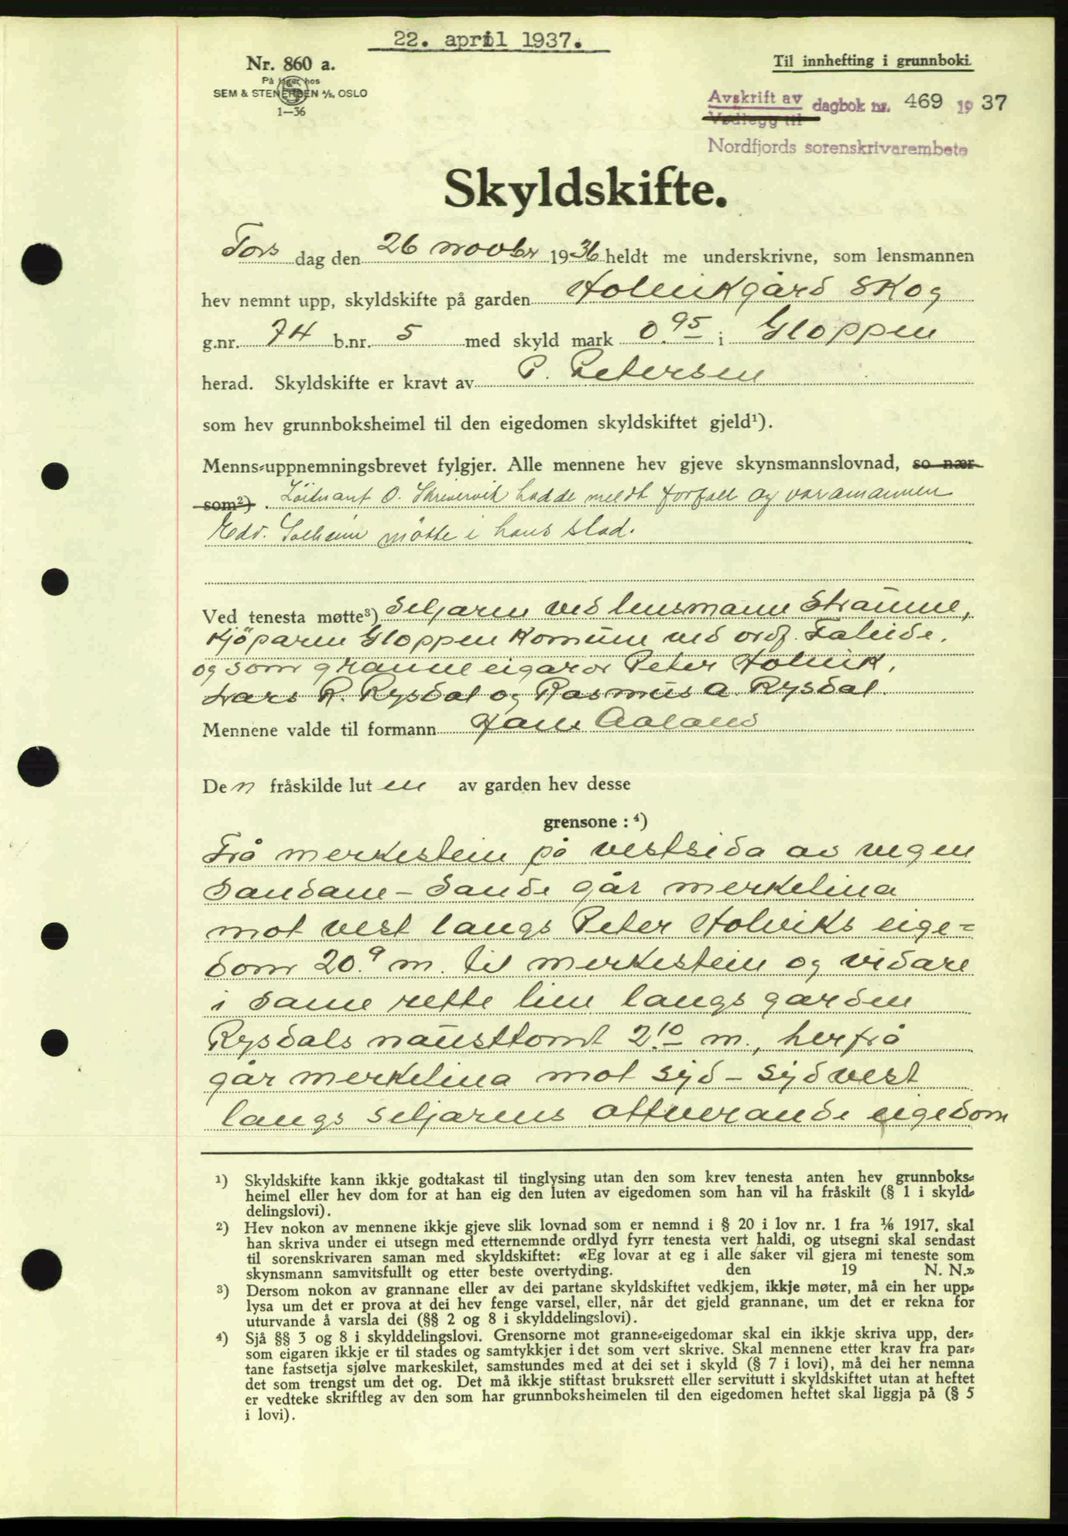 22. april 1937.
Nr. 860 a.
På lager hos
SEM & STENERSEN A/S, OSLO
1—36
Til innhefting i grunnboki
Avskrift av dagbok nr. 469 1937
Vedlegg til
Nordfjords sorenskrivarembete
Skyldskifte.
Tors dag den 26 novbr 1936 heldt me underskrivne, som lensmannen
hev nemnt upp, skyldskifte på garden Holvikgård Skog
g.nr. 74 b.nr. 5 med skyld mark 0.95 i Gloppen
herad. Skyldskifte er kravt av P. Petersen
som hev grunnboksheimel til den eigedomen skyldskiftet gjeld¹).
Menns-uppnemningsbrevet fylgjer. Alle mennene hev gjeve skynsmannslovnad, so nær
som²). Löitnant O. Skrivervik hadde meldt forfall og varamannen
Edv. Solheim mötte i hans stad.
Ved tenesta møtte³) Seljaren ved lensmann Straume,
Kjöparen Gloppen Komune ved ordf. Faleide.
og som granneeigaror Peter Holvik,
Lars R. Rysdal og Rasmus A. Rysdal.
Mennene valde til formann Jans Aaland
De n fråskilde lut en av garden hev desse
grensone: ⁴)
Frå merkestein på vestsida av vegen
Sandane - Sande går merkelina
mot vest langs Peter Holviks eige=
dom 20.9 m. til merkestein og vidare
i same rette line langs garden
Rysdals nausttomt 2.10 m., herfrå
går merkelina mot syd - sydvest
langs seljarens attverande eigedom
¹) Skyldskifte kann ikkje godtakast til tinglysing utan den som krev tenesta anten hev grunnboks-
heimel eller hev dom for at han eig den luten av eigedomen som han vil ha fråskilt (§ 1 i skyld-
delingslovi).
²) Hev nokon av mennene ikkje gjeve slik lovnad som er nemnd i § 20 i lov nr. 1 fra ⅙ 1917, skal
han skriva under ei utsegn med etternemnde ordlyd fyrr tenesta vert haldi, og utsegni skal sendast
til sorenskrivaren saman med skyldskiftet: «Eg lovar at eg i alle saker vil gjera mi teneste som
skynsmann samvitsfullt og etter beste overtyding. den 19 N. N.»
³) Dersom nokon av grannane eller av dei partane skyldskiftet vedkjem, ikkje møter, må ein her upp-
lysa um det er prova at dei hev fenge varsel, eller, når det gjeld grannane, um det er rekna for
uturvande å varsla dei (§§ 2 og 8 i skylddelingslovi).
⁴) Sjå §§ 3 og 8 i skylddelingslovi. Grensorne mot granne-eigedomar skal ein ikkje skriva upp, der-
som eigaren ikkje er til stades og samtykkjer i det som vert skrive. Skal mennene etter krav fra par-
tane fastsetja sjølve markeskilet, samstundes med at dei set i skyld (§ 7 i lovi), må dei her nemna
det som trengst um det og. Det må ikkje stiftast bruksrett eller servitutt i skyldskiftet utan at heftet
er vedteke skriftleg av den som har grunnboksheimelen til den eigedomen heftet skal liggja på (§ 5
i lovi).